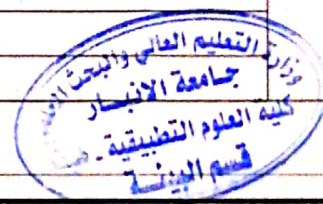 وزارة التعليم العالي والبحث
جامعة الانبار
كلية العلوم التطبيقية -
قسم البيئة